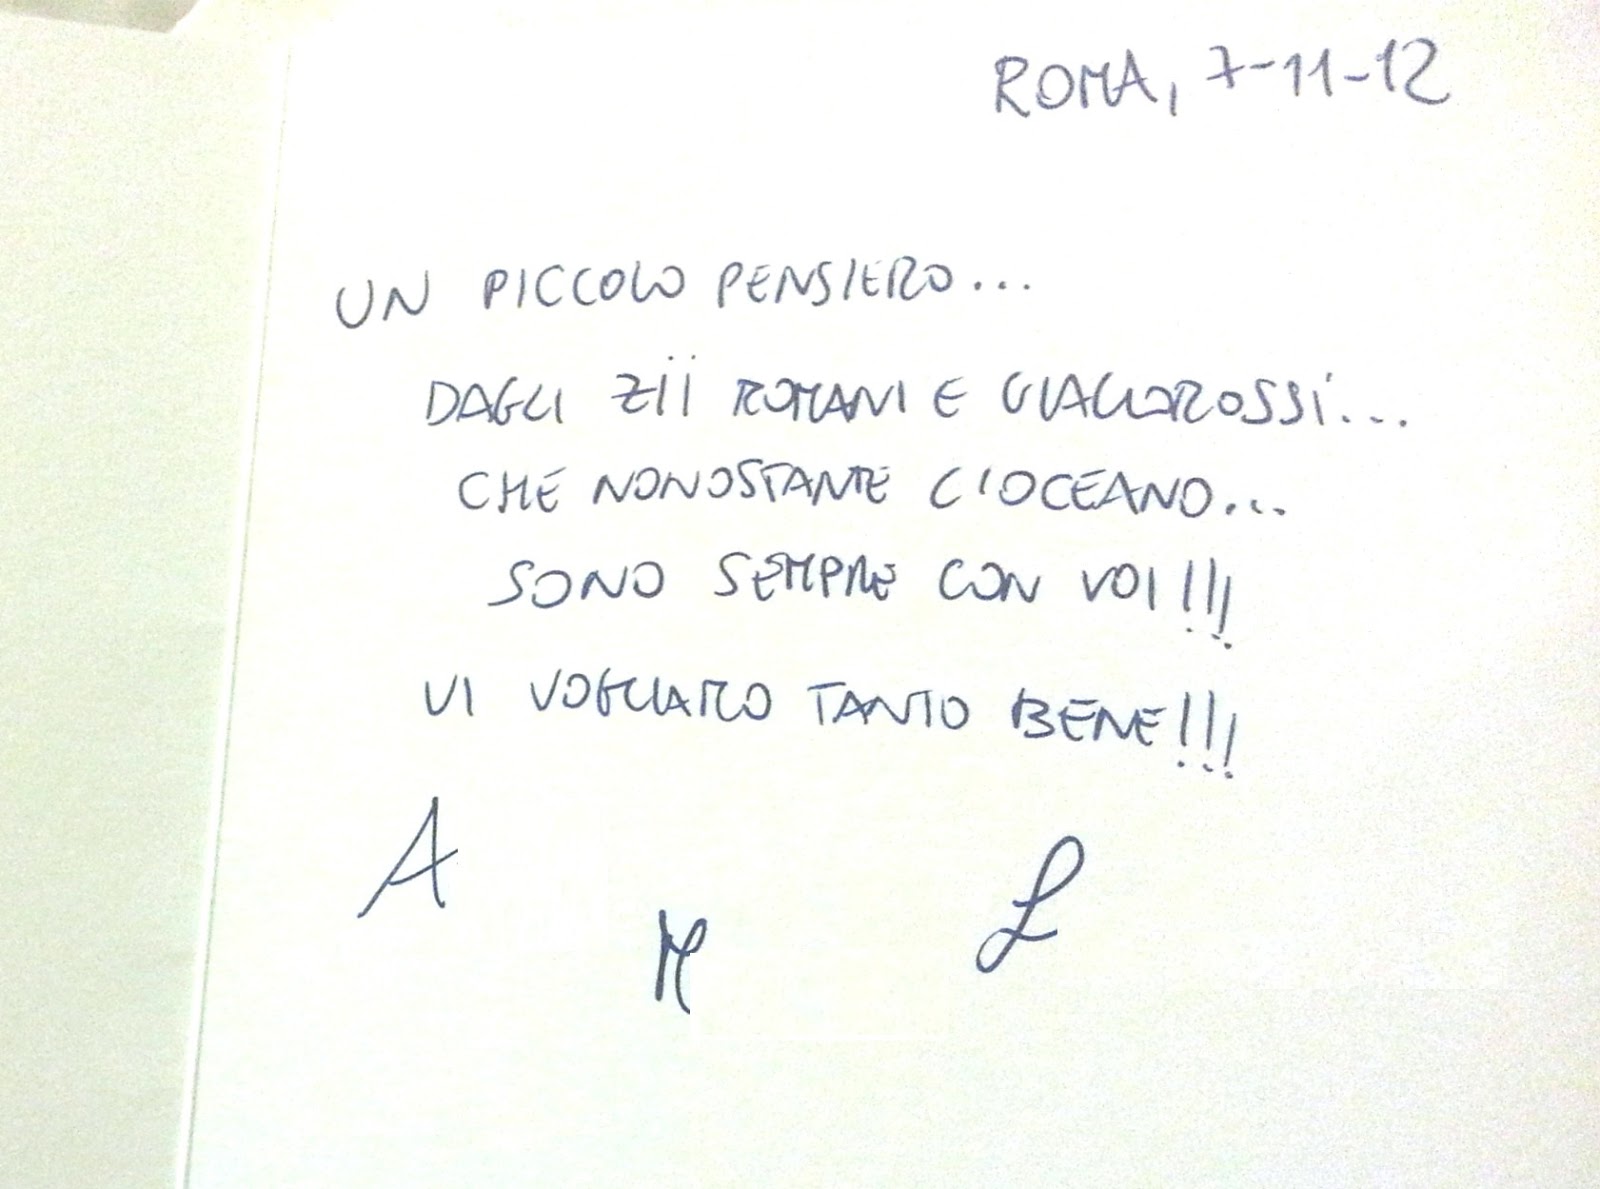 ROMA, 7-11-12
UN PICCOLO PENSIERO...
DAGLI ZII ROMANI E GIALLOROSSI...
CHE NONOSTANTE L'OCEANO...
SONO SEMPRE CON VOI!!!
VI VOGLIAMO TANTO BENE!!!
A
M
L